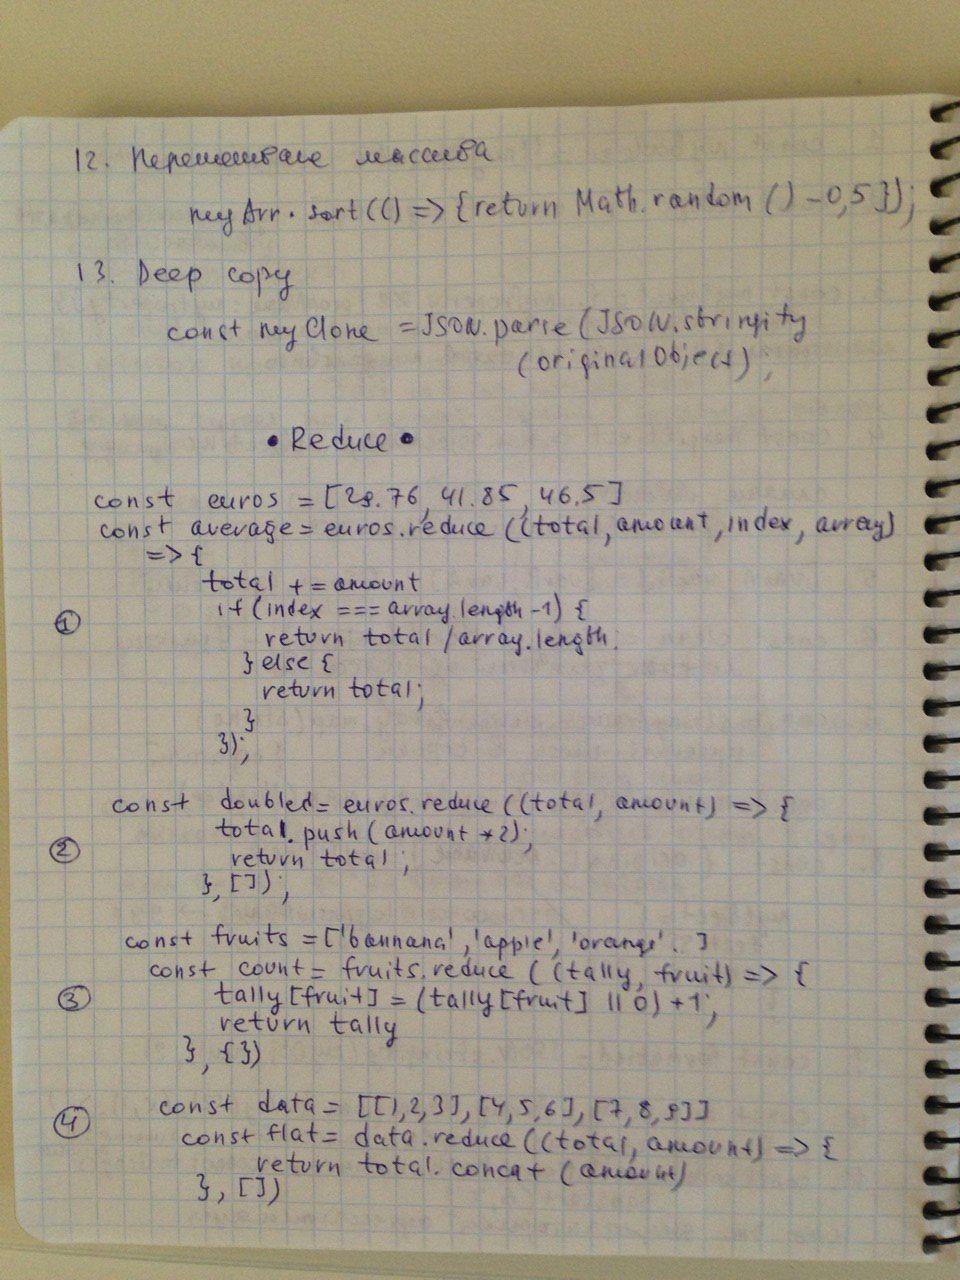 12. Перемешивание массива
myArr.sort(() => {return Math.random() - 0,5});
13. Deep copy
const myClone = JSON.parse(JSON.stringify
(originalObject);
• Reduce •
const euros = [29.76, 41.85, 46.5]
const average = euros.reduce((total, amount, index, array)
=> {
total += amount
if (index === array.length -1) {
① return total / array.length.
} else {
return total;
}
});
const doubled = euros.reduce((total, amount) => {
total.push(amount *2);
② return total;
}, []);
const fruits = ['bannana', 'apple', 'orange'. ]
const count = fruits.reduce ((tally, fruit) => {
③ tally[fruit] = (tally[fruit] || 0) + 1;
return tally
}, {})
④ const data = [[1,2,3],[4,5,6],[7,8,9]]
const flat = data.reduce((total, amount) => {
return total.concat (amount)
}, [])